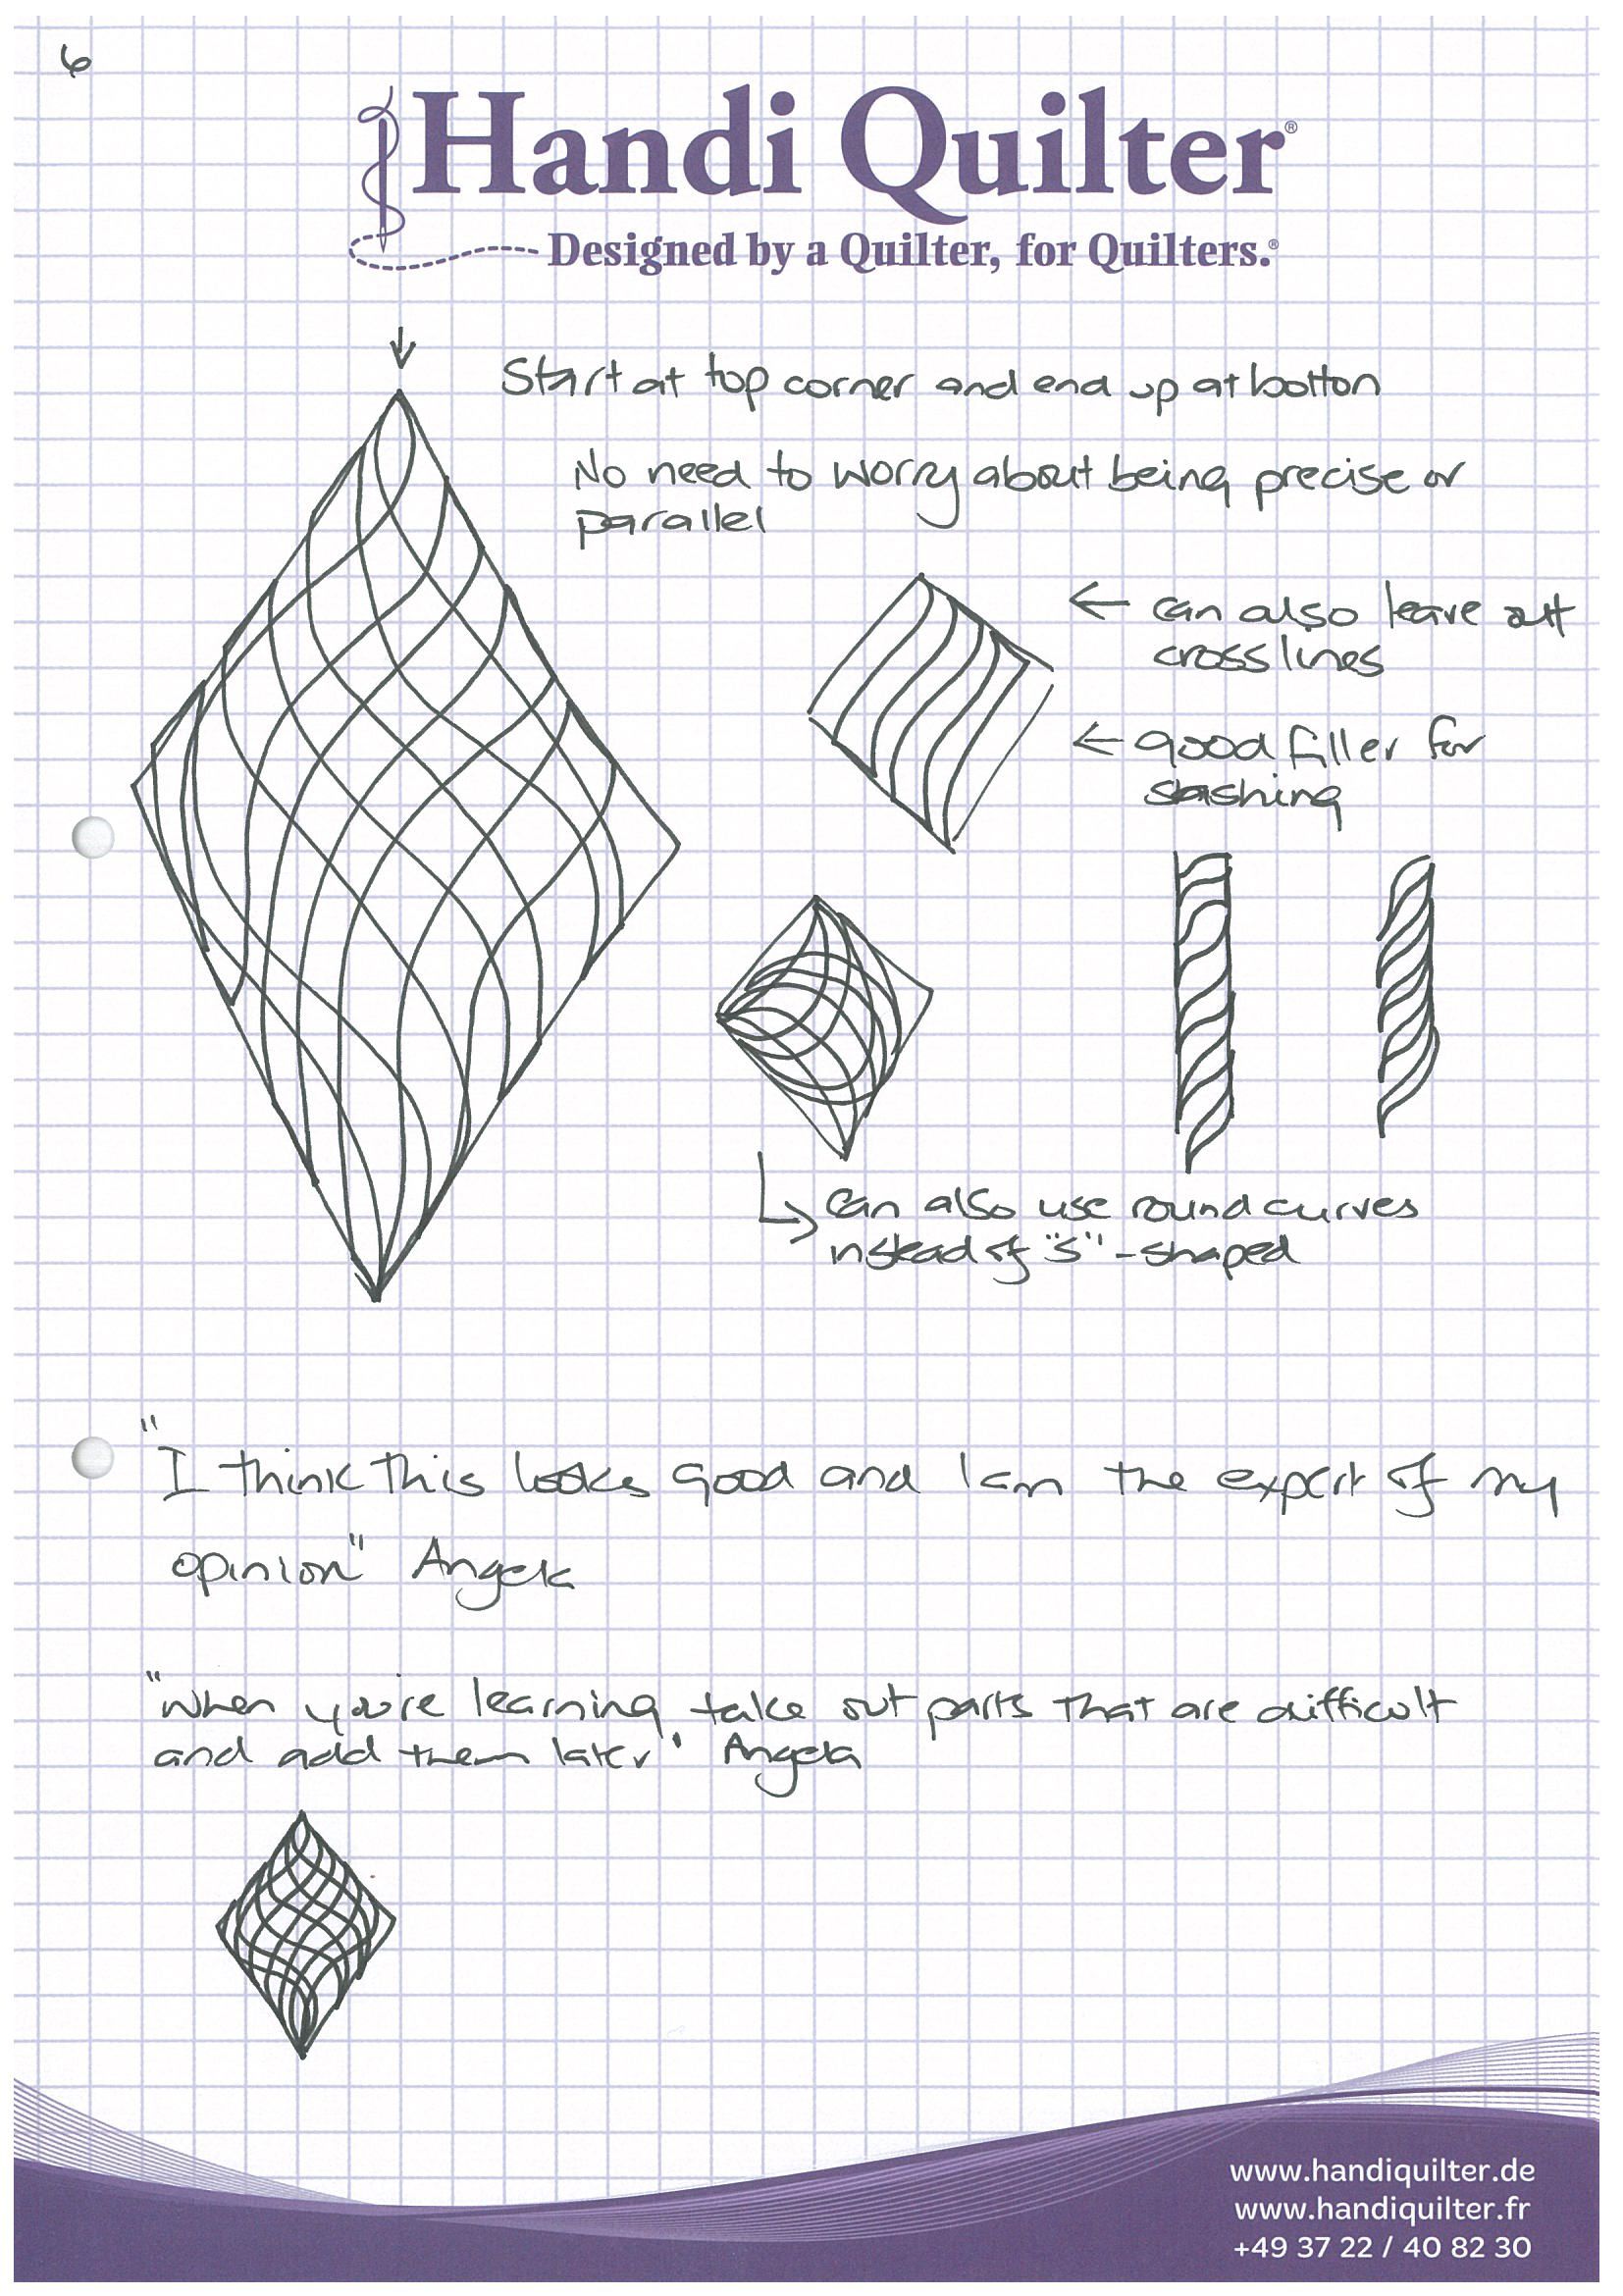 6
Handi Quilter®
Designed by a Quilter, for Quilters.®
Start at top corner and end up at botton
No need to worry about being precise or
parallel
← can also leave out
cross lines
← good filler for
sashing
can also use round curves
instead of "S"-shaped
"I think this looks good and I am the expert of my
opinion" Angela
"when you're learning take out parts that are difficult
and add them later" Angela
www.handiquilter.de
www.handiquilter.fr
+49 37 22 / 40 82 30